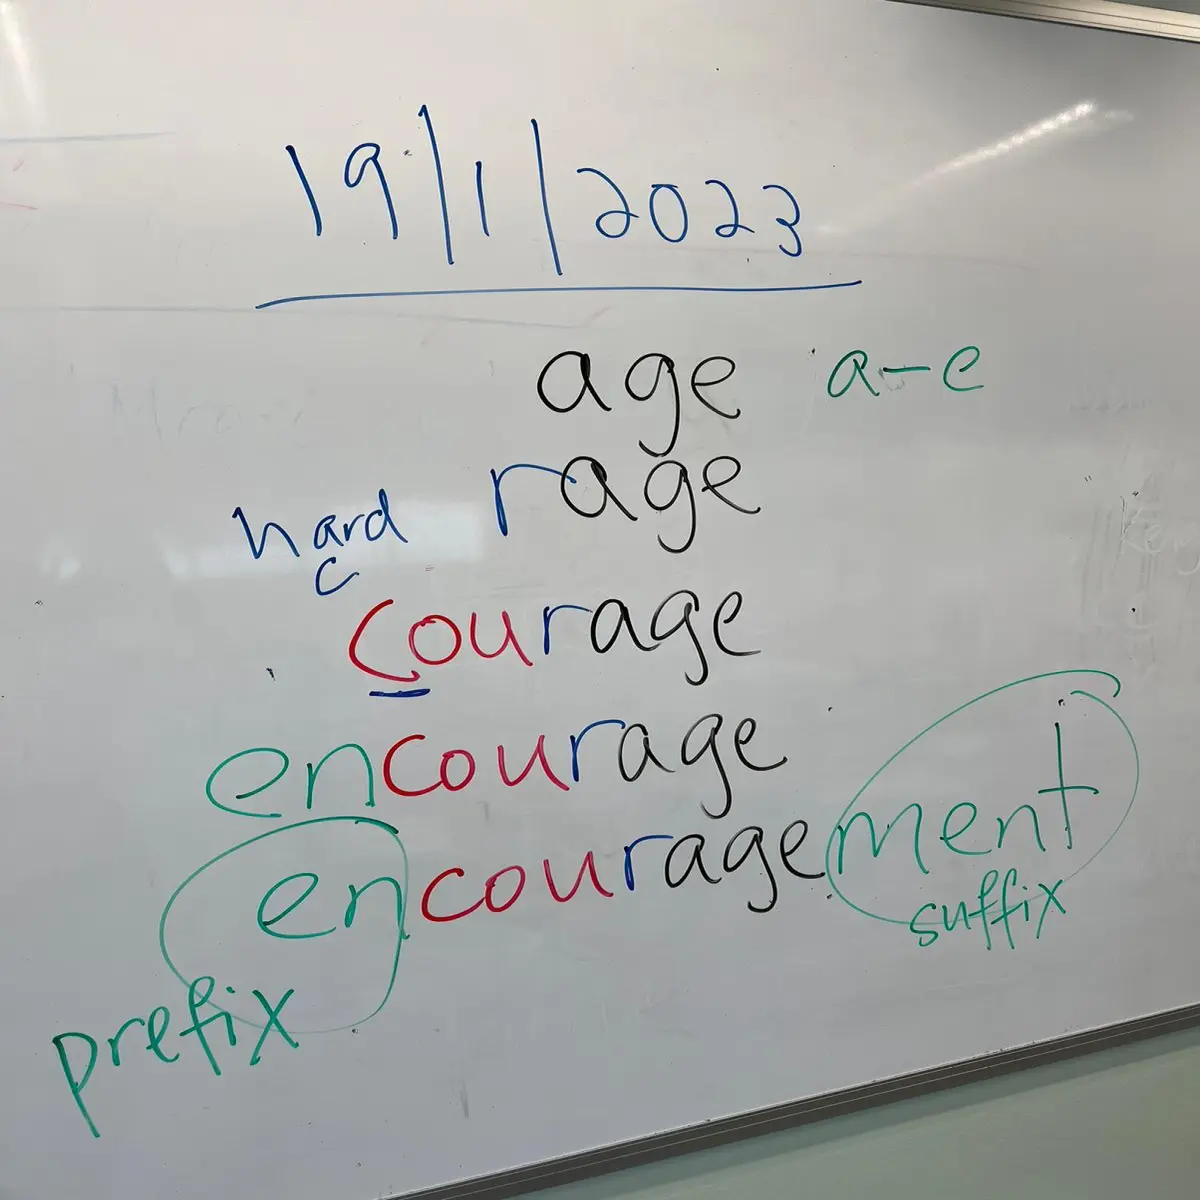 19/1/2023
age a-e
rage
hard
c
courage
encourage
encouragement
suffix
prefix